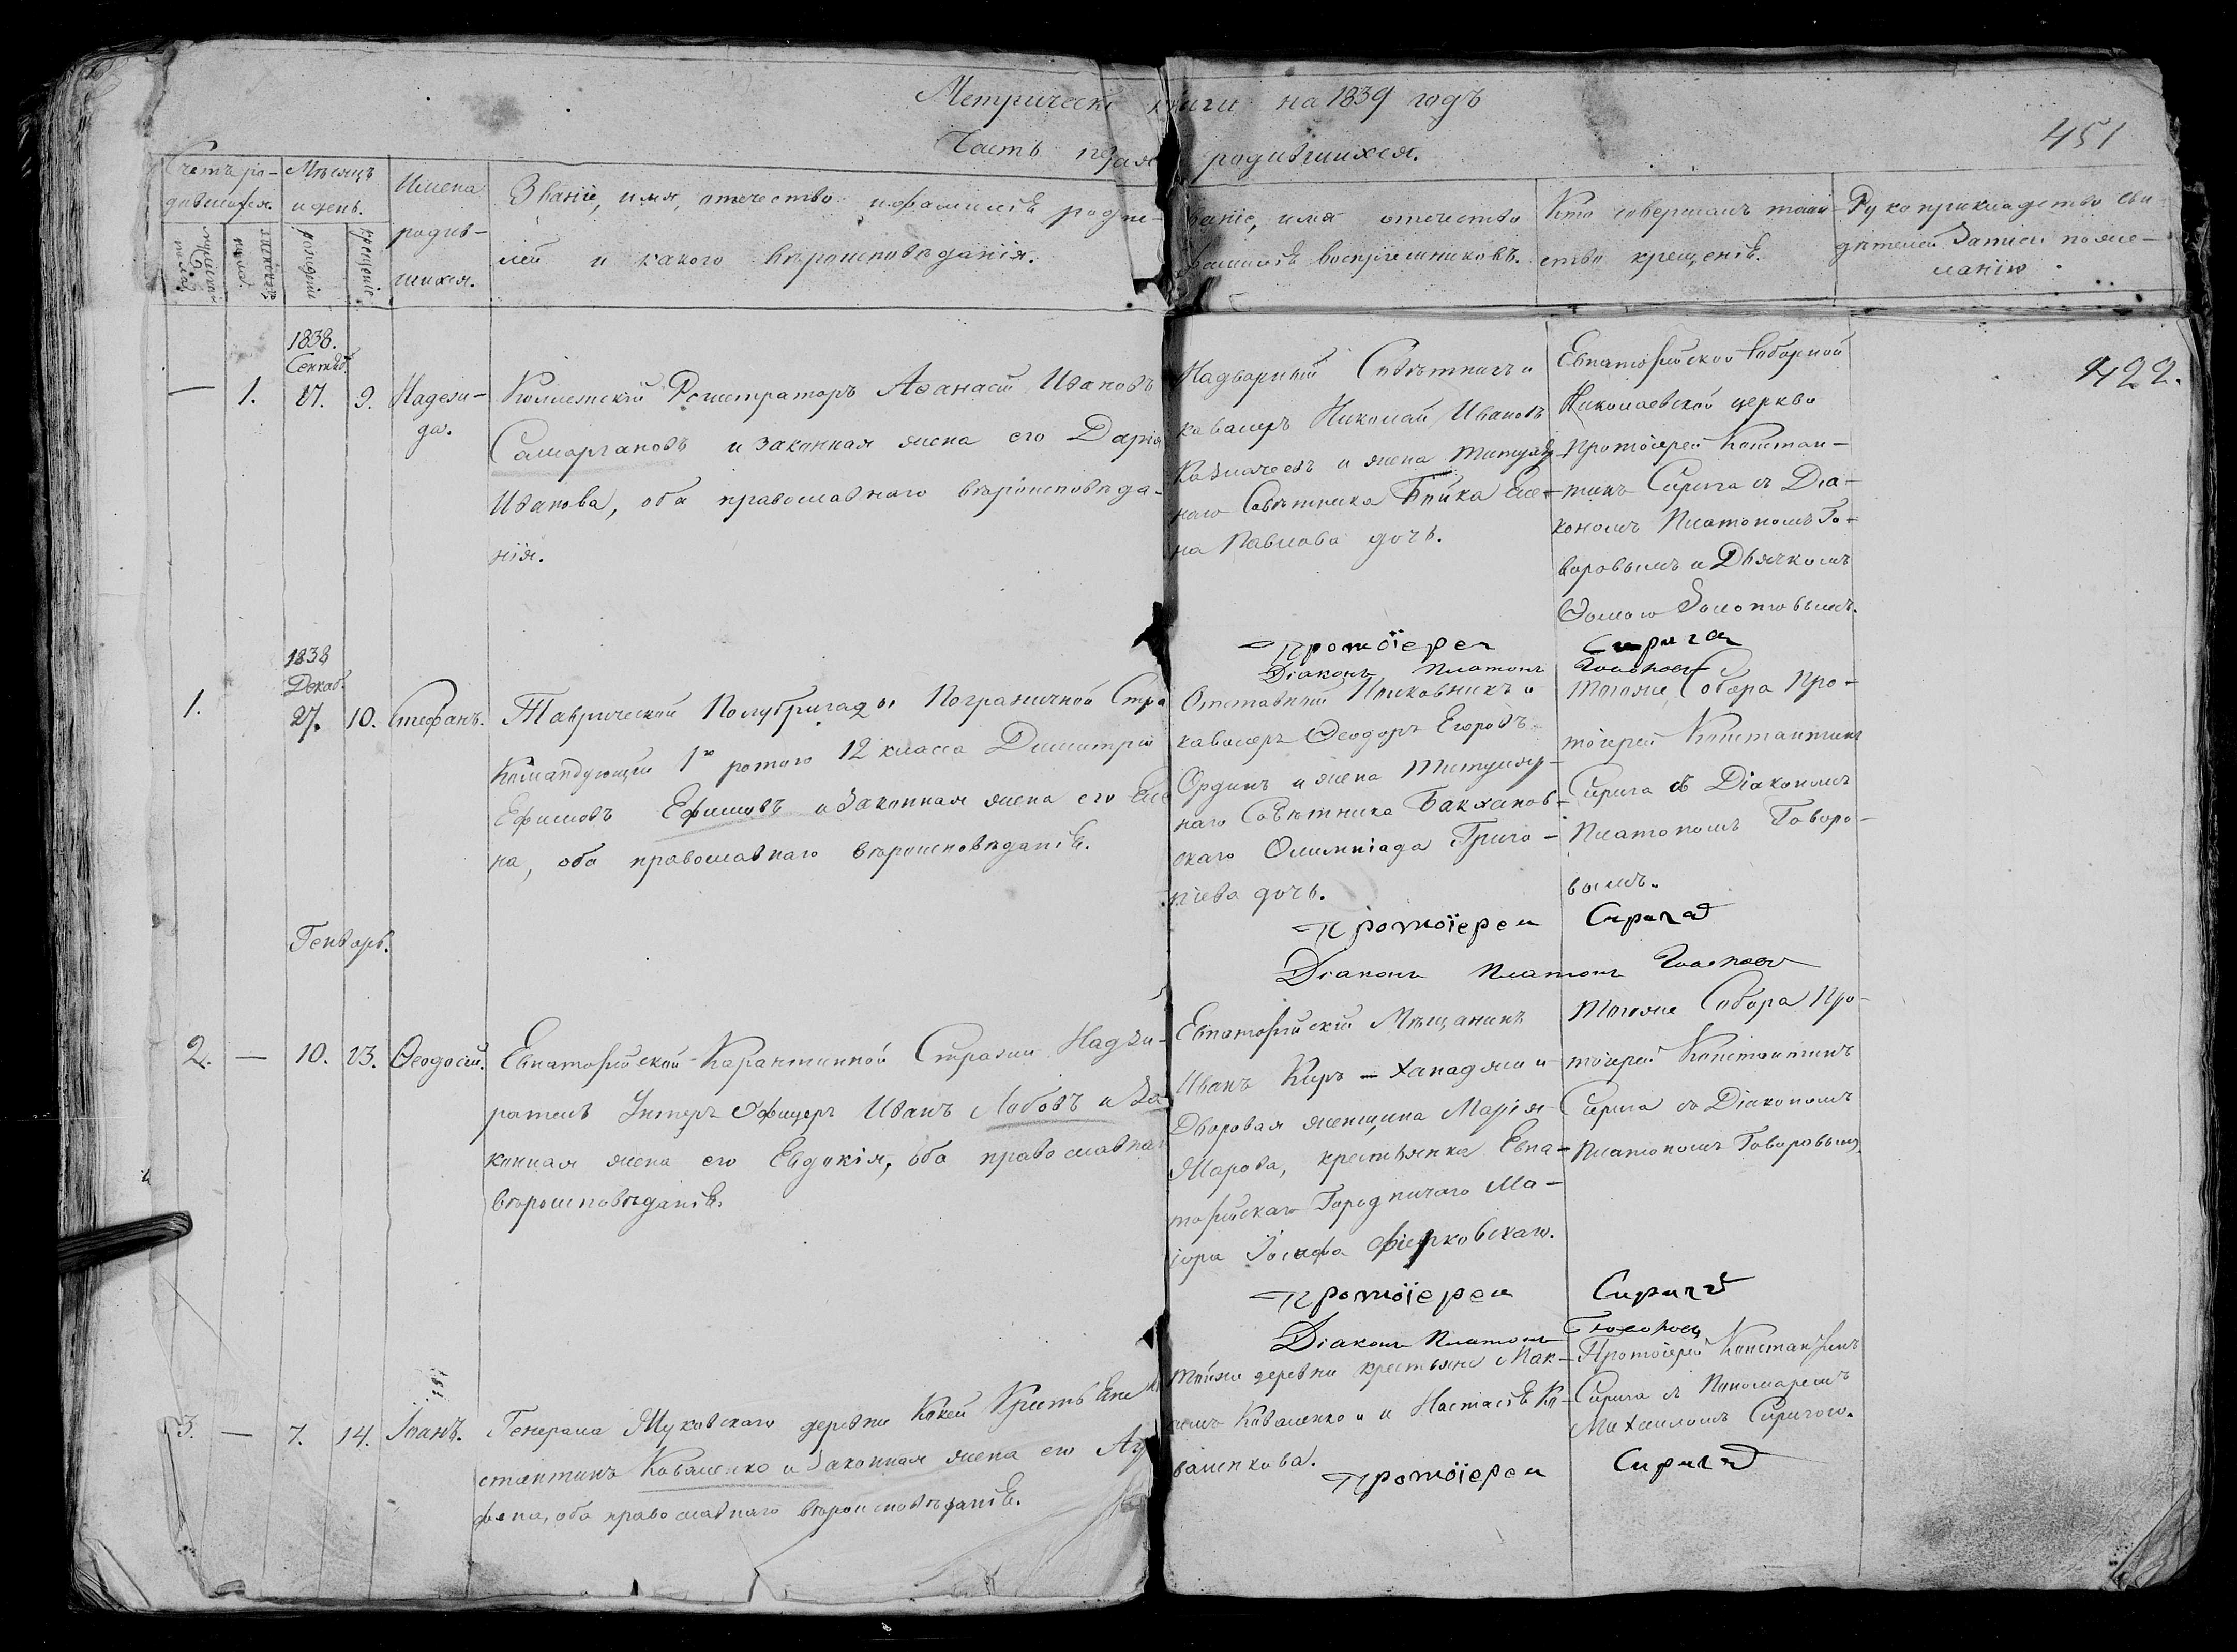 Метрическ книги на 1839 годъ
Часть родившихся.
451
Счетъ ро-
дившихся.
мужеска
пола
женска
пола
Мѣсяцъ
и день.
рожденія
крещенія
Имена
родив-
шихся.
Званіе, имя, отечество и фамилія родите-
лей и какого вѣроисповѣданія.
Званіе, имя отечество
фамилія воспріемниковъ.
Кто совершалъ таин-
ство крещенія.
Рукоприкладство сви-
дѣтелей записи по же-
ланію.
422.
1838.
Сентяб.
— 1. 17. 9. Надеж-
да.
Коллежскій Регистраторъ Аѳанасій Ивановъ
Самаргановъ и законная жена его Дарія
Иванова, оба православнаго вѣроисповѣда-
нія.
Надворный Совѣтникъ и
кавалеръ Николай Ивановъ
Казначеевъ и жена титуляр-
наго Совѣтника Еле-
на Павлова дочь.
Евпаторійской Соборной
Николаевской церкви
Протоіерей Констан-
тинъ Сирига съ Діа-
кономъ Платономъ Го-
воровымъ и Дьячкомъ
Ѳомою Золотовымъ.
Протоіерей Сирига
Діаконъ Платонъ Говоровъ
1838
Декаб.
1. 27. 10. Стефанъ.
Таврической Полубригады Пограничной Стра
Командующій 1ю ротою 12 класса Димитрій
Ефимовъ Ефимовъ и законная жена его Еле
на, оба православнаго вѣроисповѣданія.
Отставный Полковникъ и
кавалеръ Ѳеодоръ Егоровъ
Ординъ и жена титуляр-
наго Совѣтника Бакханов-
скаго Олимпіада Григо-
ріева дочь.
Тогоже Собора Про-
тоіерей Константинъ
Сирига съ Діакономъ
Платономъ Говоро-
вымъ.
Протоіерей Сирига
Діаконъ Платонъ Говоровъ
Генварь.
2. — 10. 23. Ѳеодосій.
Евпаторійской Карантинной Стражи Надзи-
ратель Унтеръ Офицеръ Иванъ Лобовъ и за-
конная жена его Евдокія, оба православна
вѣроисповѣданія.
Евпаторійскій Мѣщанинъ
Иванъ Киръ - Ханаджи и
Дворовая женщина Марія
Марова, крестьянка Евпа-
торійскаго Городничаго Ма-
іора Іосифа
Тогоже Собора Про-
тоіерей Константинъ
Сирига съ Діакономъ
Платономъ Говоровымъ
Протоіерей Сирига
Діаконъ Платонъ Говоровъ
3. — 7. 14. Іоанъ.
Генерала деревни
стантинъ Коваленко и законная жена его Аг
фена, оба православнаго вѣроисповѣданія.
Тойже деревни крестьяне Мак-
симъ Коваленко и Настасія Ко-
валенкова.
Протоіерей Константинъ
Сирига съ Пономаремъ
Михаиломъ Сиригою.
Протоіерей Сирига